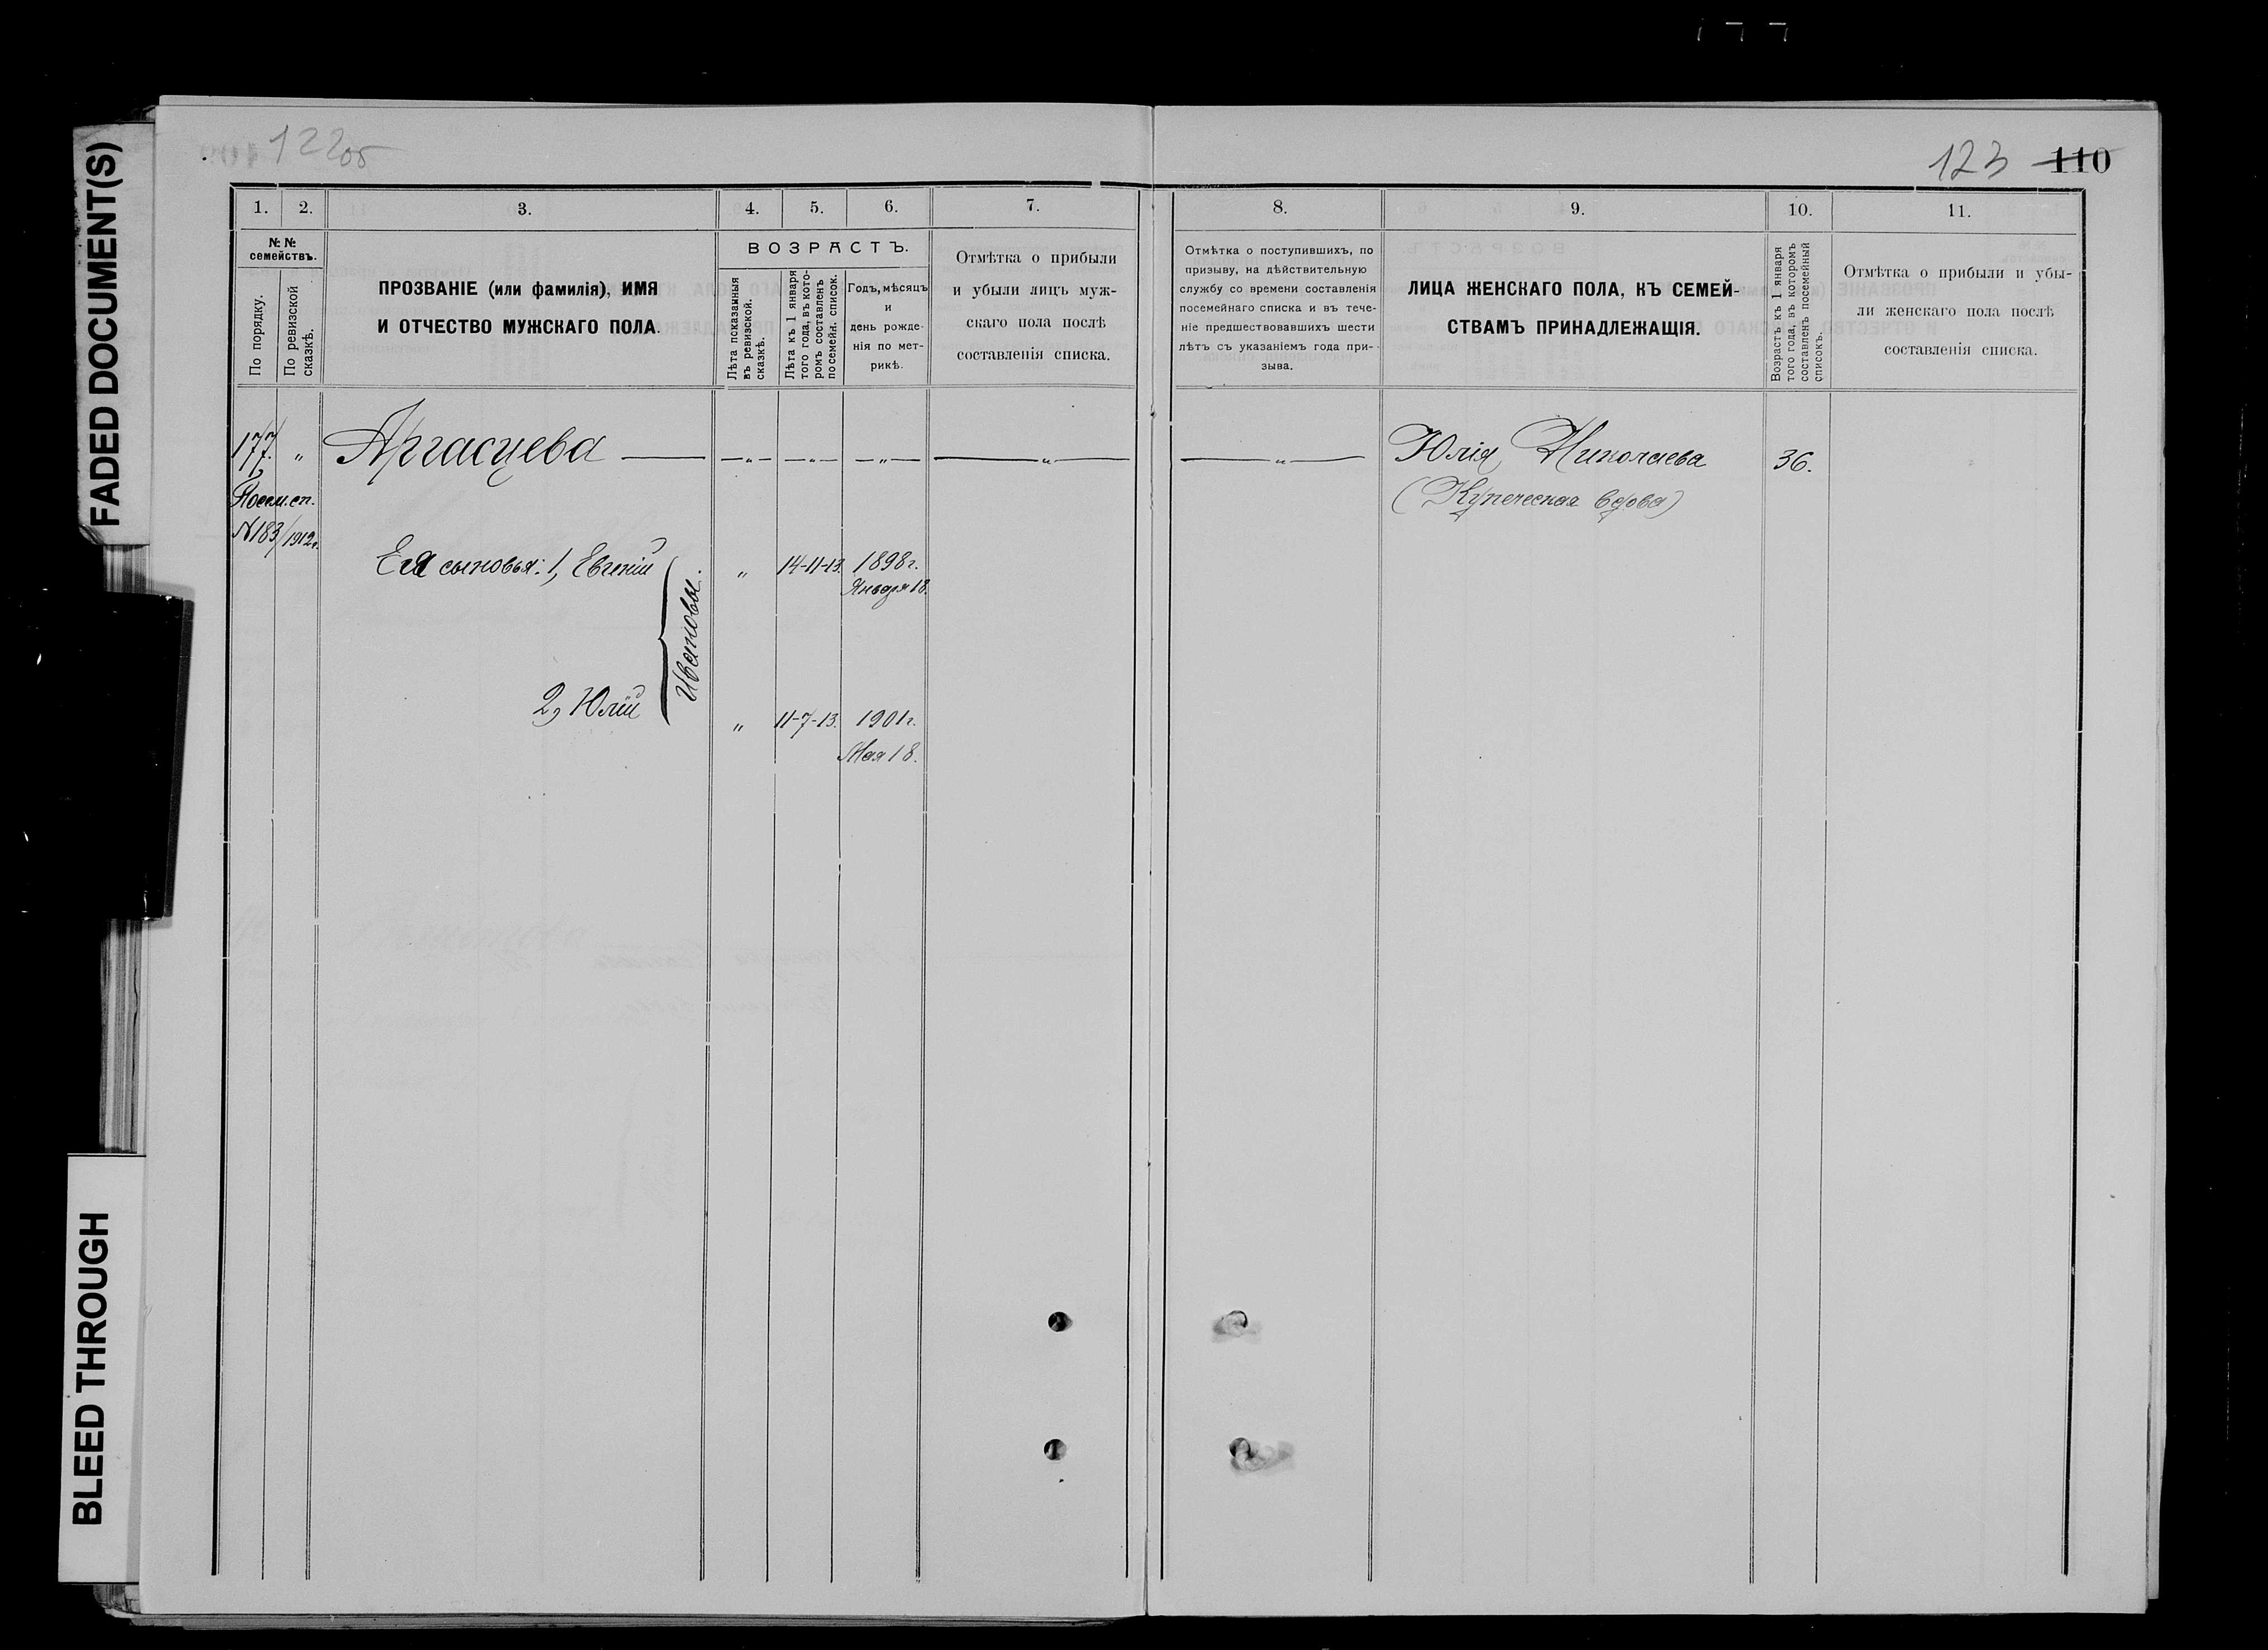 FADED DOCUMENT(S)
BLEED THROUGH
122об
123 110
1. 2. 3. 4. 5. 6. 7. 8. 9. 10. 11.
№№ семействъ.
По порядку.
По ревизской сказкѣ.
ПРОЗВАНІЕ (или фамилія), ИМЯ
И ОТЧЕСТВО МУЖСКАГО ПОЛА.
ВОЗРАСТЪ.
Лѣта показанныя
въ ревизской.
сказкѣ.
Лѣта къ 1 января
того года, въ кото-
ромъ составленъ
посемейн. список.
Годъ, мѣсяцъ
и
день рожде-
нія по мет-
рикѣ.
Отмѣтка о прибыли
и убыли лицъ муж-
скаго пола послѣ
составленія списка.
Отмѣтка о поступившихъ, по
призыву, на дѣйствительную
службу со времени составленія
посемейнаго списка и въ тече-
ніе предшествовавшихъ шести
лѣтъ съ указаніемъ года при-
зыва.
ЛИЦА ЖЕНСКАГО ПОЛА, КЪ СЕМЕЙ-
СТВАМЪ ПРИНАДЛЕЖАЩІЯ.
Возрастъ къ 1 января
того года, въ которомъ
составленъ посемейный
списокъ.
Отмѣтка о прибыли и убы-
ли женскаго пола послѣ
составленія списка.
177. „ Аргасцева — „ — „ — „ — „ — „ — Юлія Николаева 36.
Посем.сп. (Купеческая вдова)
№183/1912г.
Ея сыновья: 1, Евгеній „ 14-11-13. 1898г.
Января 18.
Ивановы.
2, Юлій „ 11-7-13. 1901г.
Мая 18.